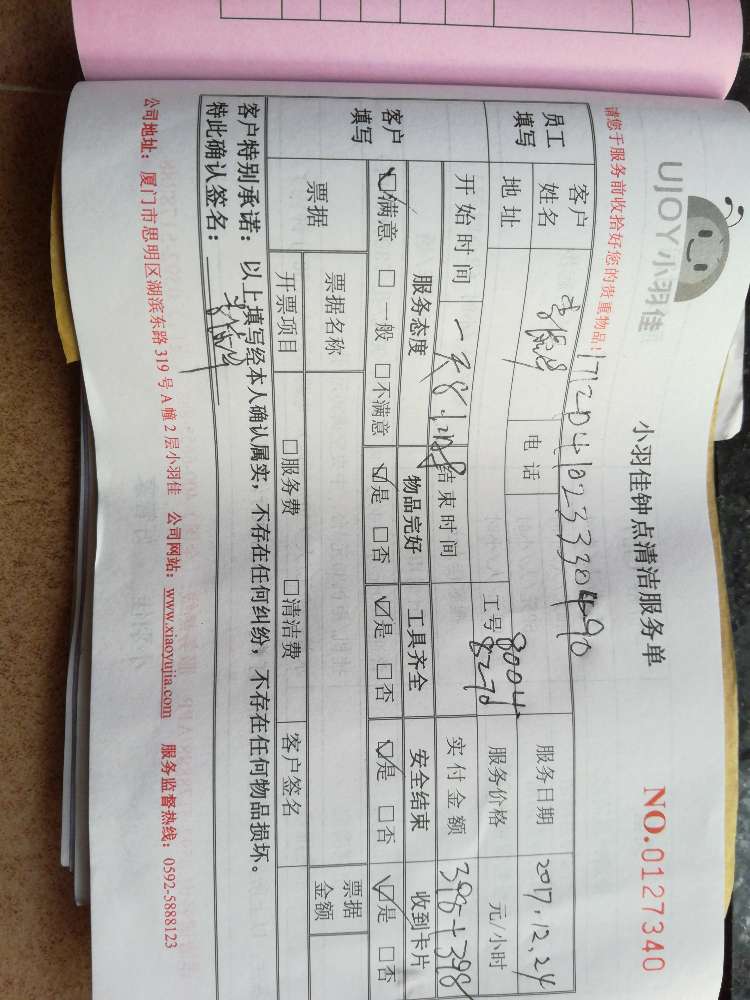 UJOY小羽佳
小羽佳钟点清洁服务单
NO.0127340
请您于服务前收拾好您的贵重物品!
171204102333
员工填写
客户姓名
电话
服务日期
2017.12.24
地址
工号
8004
服务价格
元/小时
开始时间
结束时间
实付金额
398+398
客户填写
服务态度
物品完好
工具齐全
安全结束
收到卡片
☑满意 □一般 □不满意
☑是 □否
☑是 □否
☑是 □否
☑是 □否
票据
票据名称
票据金额
开票项目
□服务费
□清洁费
客户签名
客户特别承诺：以上填写经本人确认属实，不存在任何纠纷，不存在任何物品损坏。
特此确认签名：
公司地址：厦门市思明区湖滨东路 319 号 A 幢 2 层小羽佳 公司网站：www.xiaoyujia.com 服务监督热线：0592-5888123